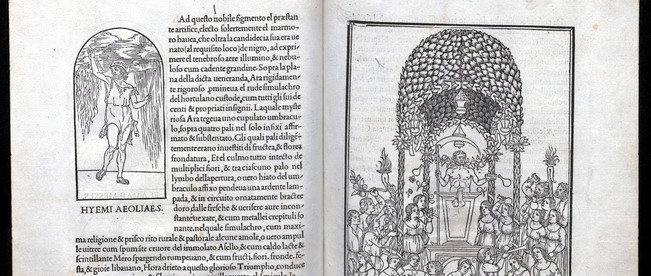 Ad questo nobile figmento el præstan
te artifice, electo solertemente el marmo-
ro hauea, che oltra la candidecia sua era ue
nato (al requisito loco) de nigro, ad expri
mere el tenebroso aere illumino, & nebu-
loso cum cadente grandine. Sopra la pla-
na della dicta ueneranda, Ara rigidamen-
te rigoroso pmineua el rude simulachro
del hortulano custode, cum tutti gli sui de
centi & propriati insignii. Laquale myste
riosa Ara tegeua uno cupulato umbracu-
lo, sopra quatro pali nel solo infixi affir-
mato & substentato. Gli quali pali diligē-
temente erano inuestiti di fructea, & florea
frondatura, Et el culmo tutto intecto de
multiplici fiori, & tra ciascuno palo nel
lymbo dellapertura, o uero hiato del um-
braculo affixo pendeua una ardente lam-
pada, & in circuito ornatamente bractee
doro, dalle fresche & uerifere aure incon-
stante uexate, & cum metallei crepituli so
nante, nelquale simulachro, cum maxi-
HYEMI AEOLIAE S.
ma religione & prisco rito rurale & pastorale alcune amole, o uero ampul
le uitree cum spumāte cruore del immolato Asello, & cum caldo lacte &
scintillante Mero spargendo rumpeuano, & cum fructi. fiori. fronde. fe-
sta, & gioie libauano, Hora drieto a questo glorioso Triumpho, conduce